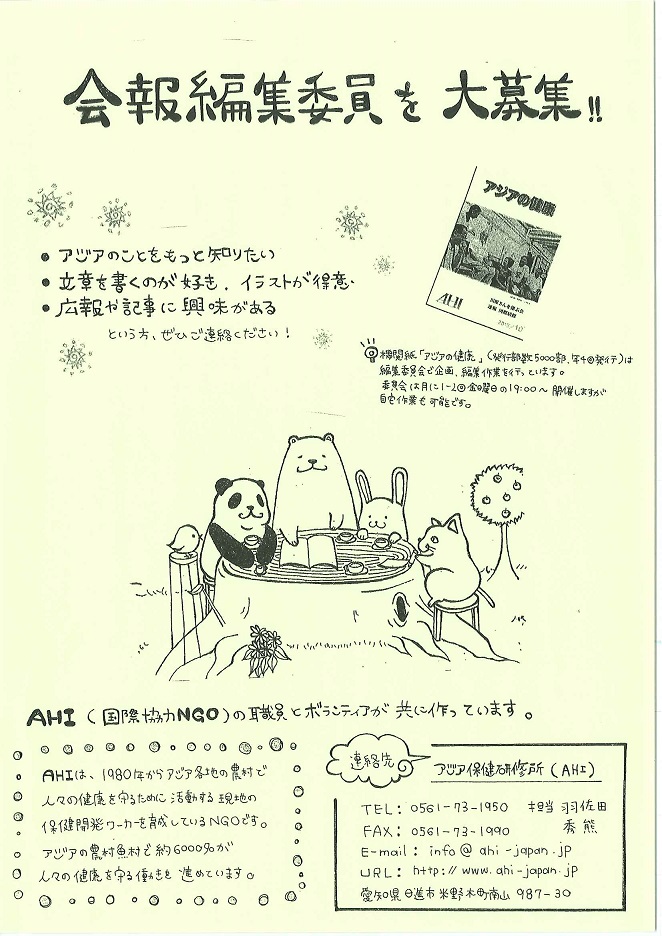 会報編集委員を 大募集!!
• アジアのことをもっと知りたい
• 文章を書くのが好き、イラストが得意
• 広報や記事に興味がある
という方、ぜひご連絡ください!
アジアの健康
AHI
機関紙「アジアの健康」(発行部数5000部、年4回発行)は
編集委員会で企画、編集作業を行っています。
委員会は月に1-2回金曜日の19:00〜開催しますが
自宅作業も可能です。
AHI(国際協力NGO)の職員とボランティアが共に作っています。
AHIは、1980年からアジア各地の農村で
人々の健康を守るために活動する現地の
保健開発ワーカーを育成しているNGOです。
アジアの農村漁村で約6000名が
人々の健康を守る働きを進めています。
連絡先
アジア保健研修所(AHI)
TEL: 0561-73-1950 担当 羽佐田
秀熊
FAX: 0561-73-1990
E-mail: info@ahi-japan.jp
URL: http://www.ahi-japan.jp
愛知県日進市米野木町南山 987-30